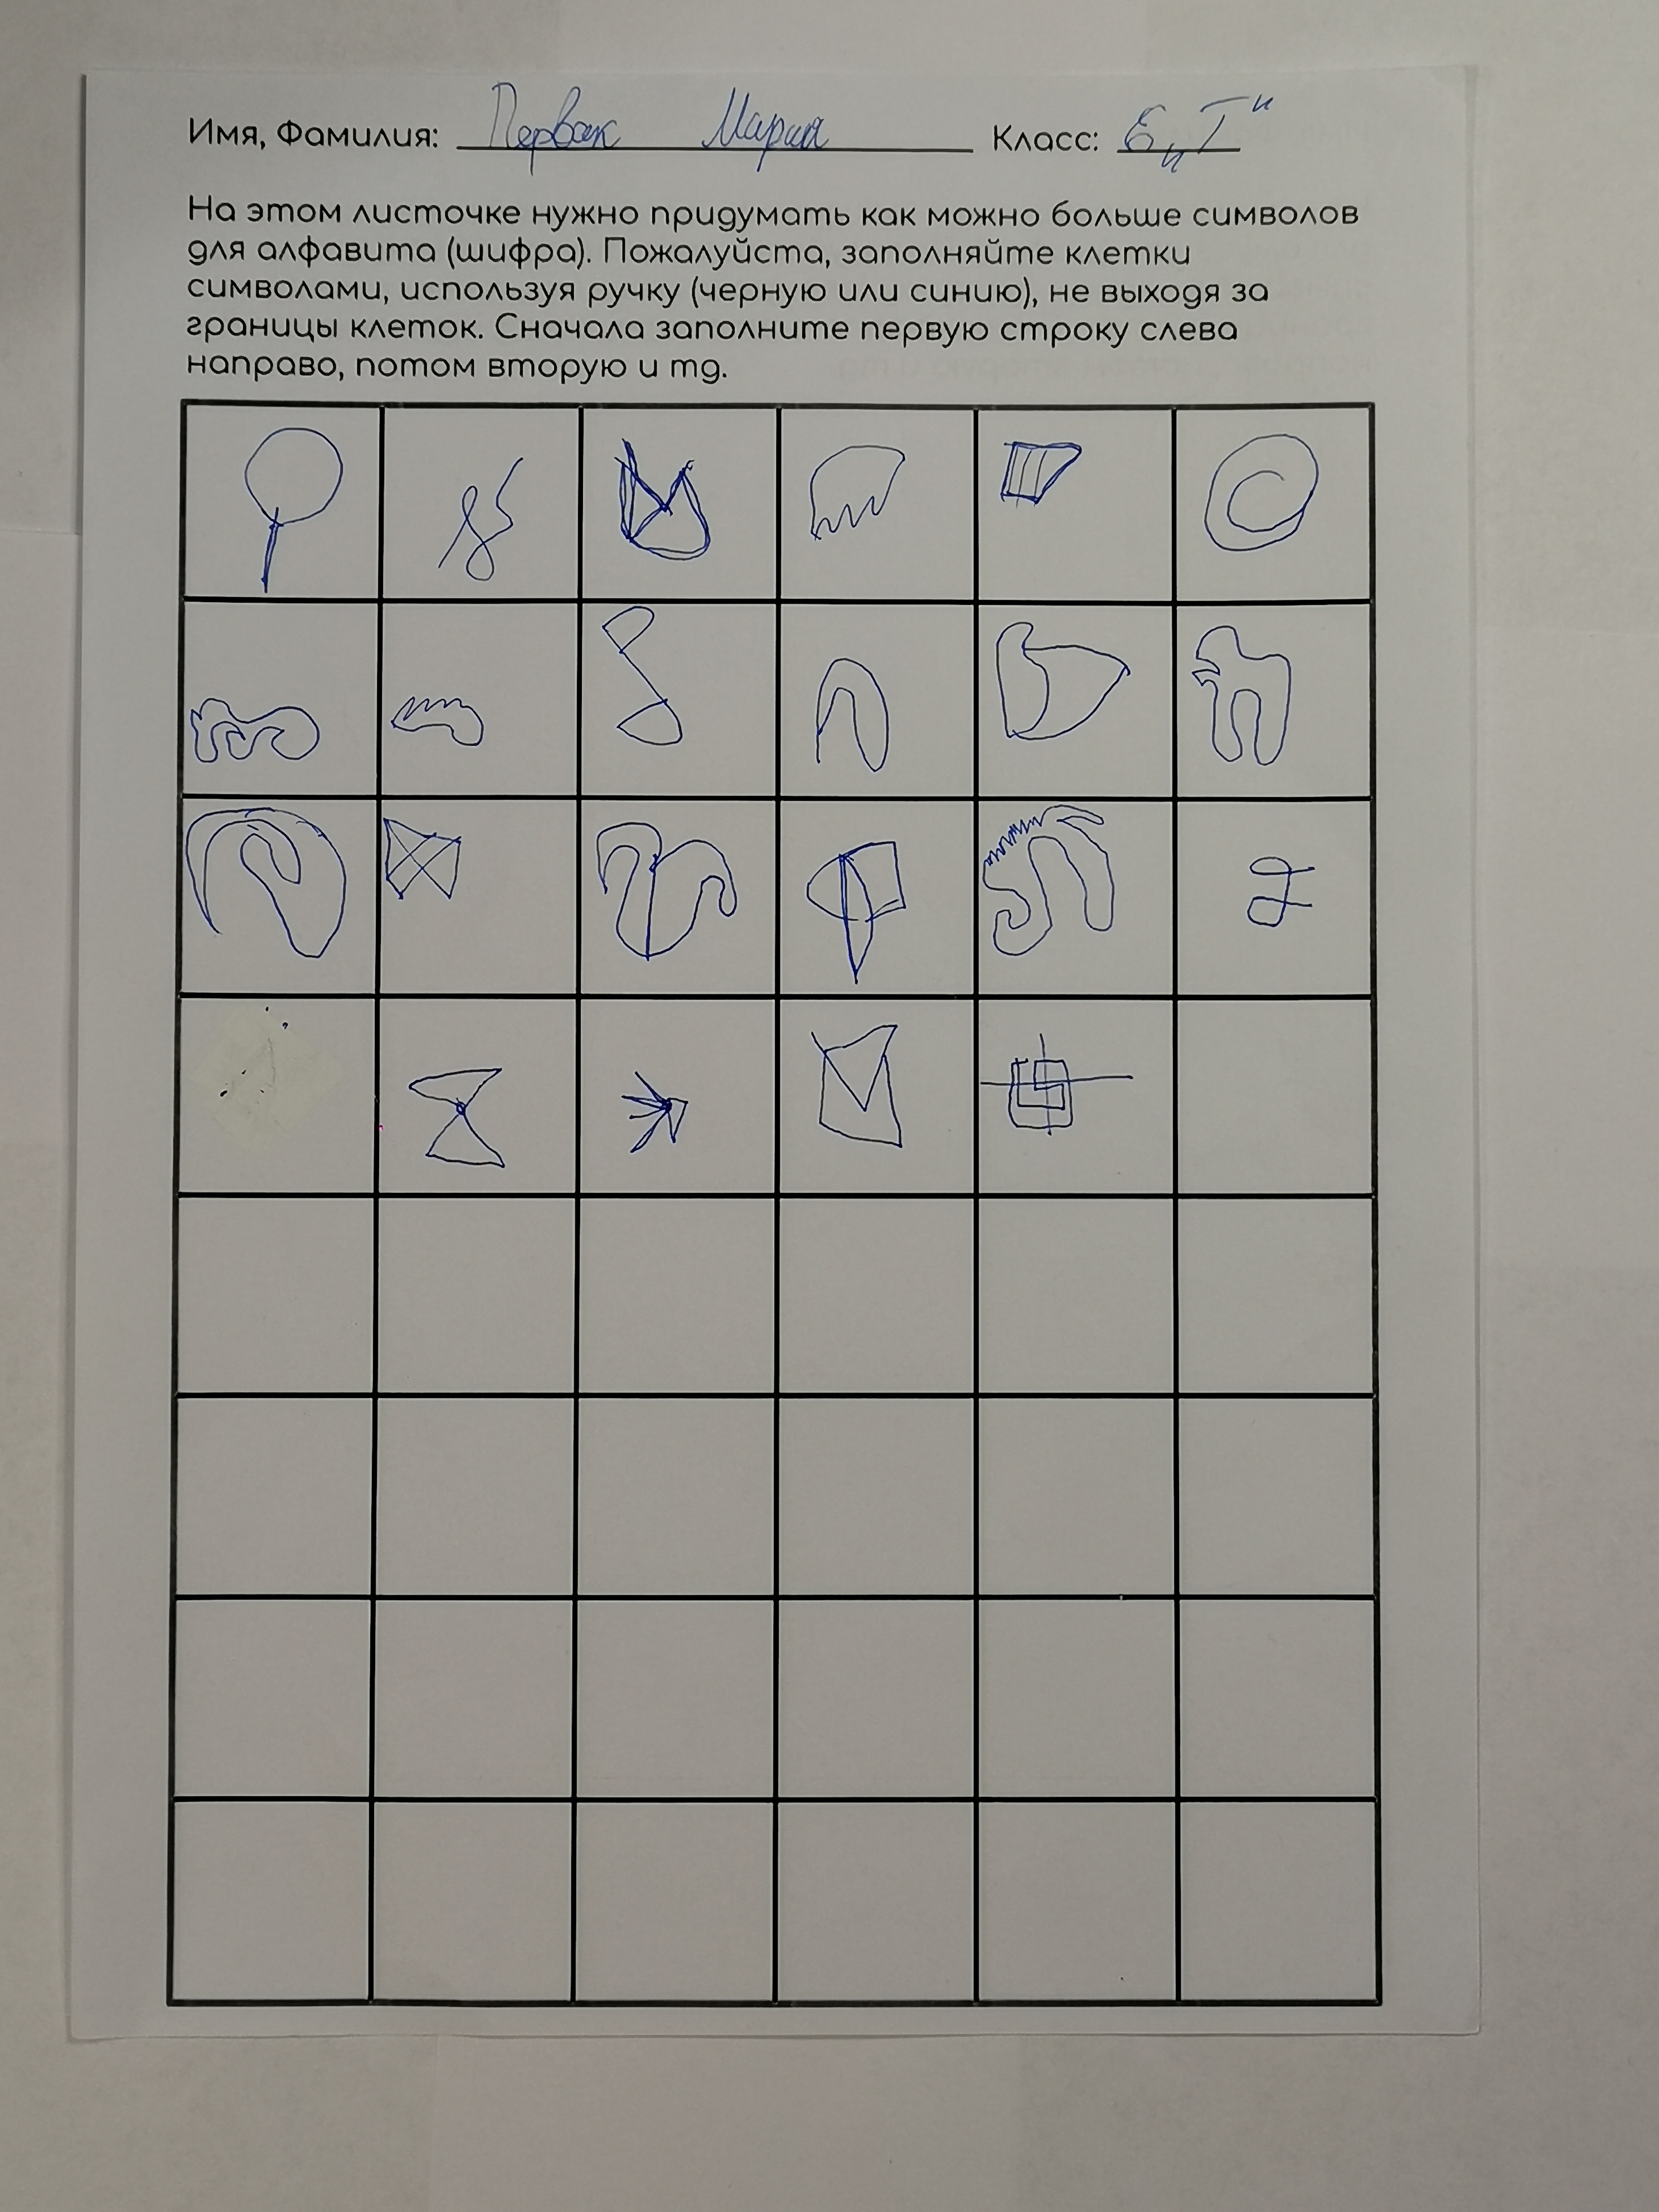 Имя, Фамилия: Первак Мария Класс: 6 „Т"
На этом листочке нужно придумать как можно больше символов
для алфавита (шифра). Пожалуйста, заполняйте клетки
символами, используя ручку (черную или синию), не выходя за
границы клеток. Сначала заполните первую строку слева
направо, потом вторую и тд.